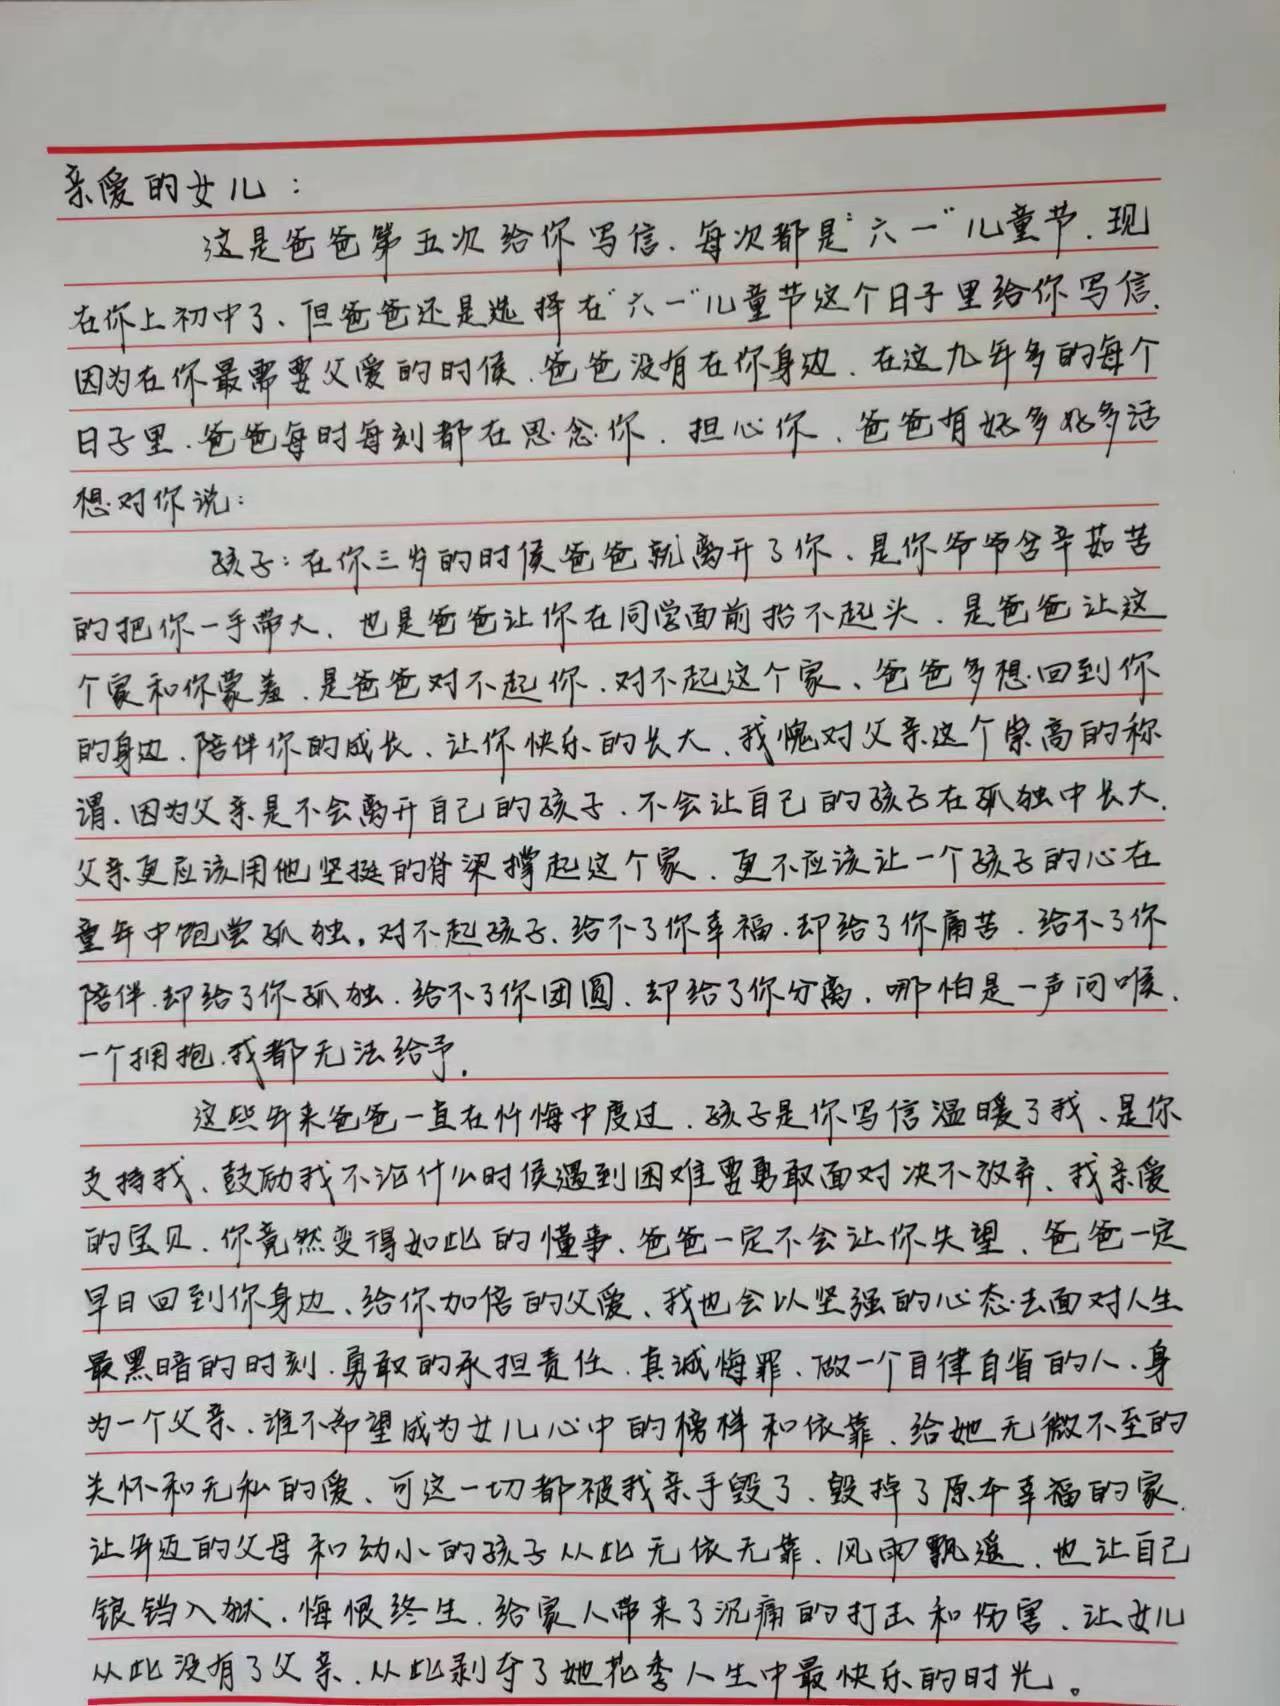 亲爱的女儿：
这是爸爸第五次给你写信、每次都是“六一”儿童节、现
在你上初中了、但爸爸还是选择在“六一”儿童节这个日子里给你写信、
因为在你最需要父爱的时候、爸爸没有在你身边、在这九年多的每个
日子里、爸爸每时每刻都在思念你、担心你、爸爸有好多好多话
想对你说：
孩子：在你三岁的时候爸爸就离开了你、是你爷爷含辛茹苦
的把你一手带大、也是爸爸让你在同学面前抬不起头、是爸爸让这
个家和你蒙羞、是爸爸对不起你、对不起这个家、爸爸多想回到你
的身边、陪伴你的成长、让你快乐的长大、我愧对父亲这个崇高的称
谓、因为父亲是不会离开自己的孩子、不会让自己的孩子在孤独中长大、
父亲更应该用他坚挺的脊梁撑起这个家、更不应该让一个孩子的心在
童年中饱尝孤独。对不起孩子、给不了你幸福、却给了你痛苦、给不了你
陪伴、却给了你孤独、给不了你团圆、却给了你分离、哪怕是一声问喉、
一个拥抱、我都无法给予。
这些年来爸爸一直在忏悔中度过、孩子是你写信温暖了我、是你
支持我、鼓励我不论什么时候遇到困难要勇敢面对决不放弃、我亲爱
的宝贝、你竟然变得如此的懂事、爸爸一定不会让你失望、爸爸一定
早日回到你身边、给你加倍的父爱、我也会以坚强的心态去面对人生
最黑暗的时刻、勇敢的承担责任、真诚悔罪、做一个自律自省的人、身
为一个父亲、谁不希望成为女儿心中的榜样和依靠、给她无微不至的
关怀和无私的爱、可这一切都被我亲手毁了、毁掉了原本幸福的家、
让年迈的父母和幼小的孩子从此无依无靠、风雨飘遥、也让自己
锒铛入狱、悔恨终生、给家人带来了沉痛的打击和伤害、让女儿
从此没有了父亲、从此剥夺了她花季人生中最快乐的时光。